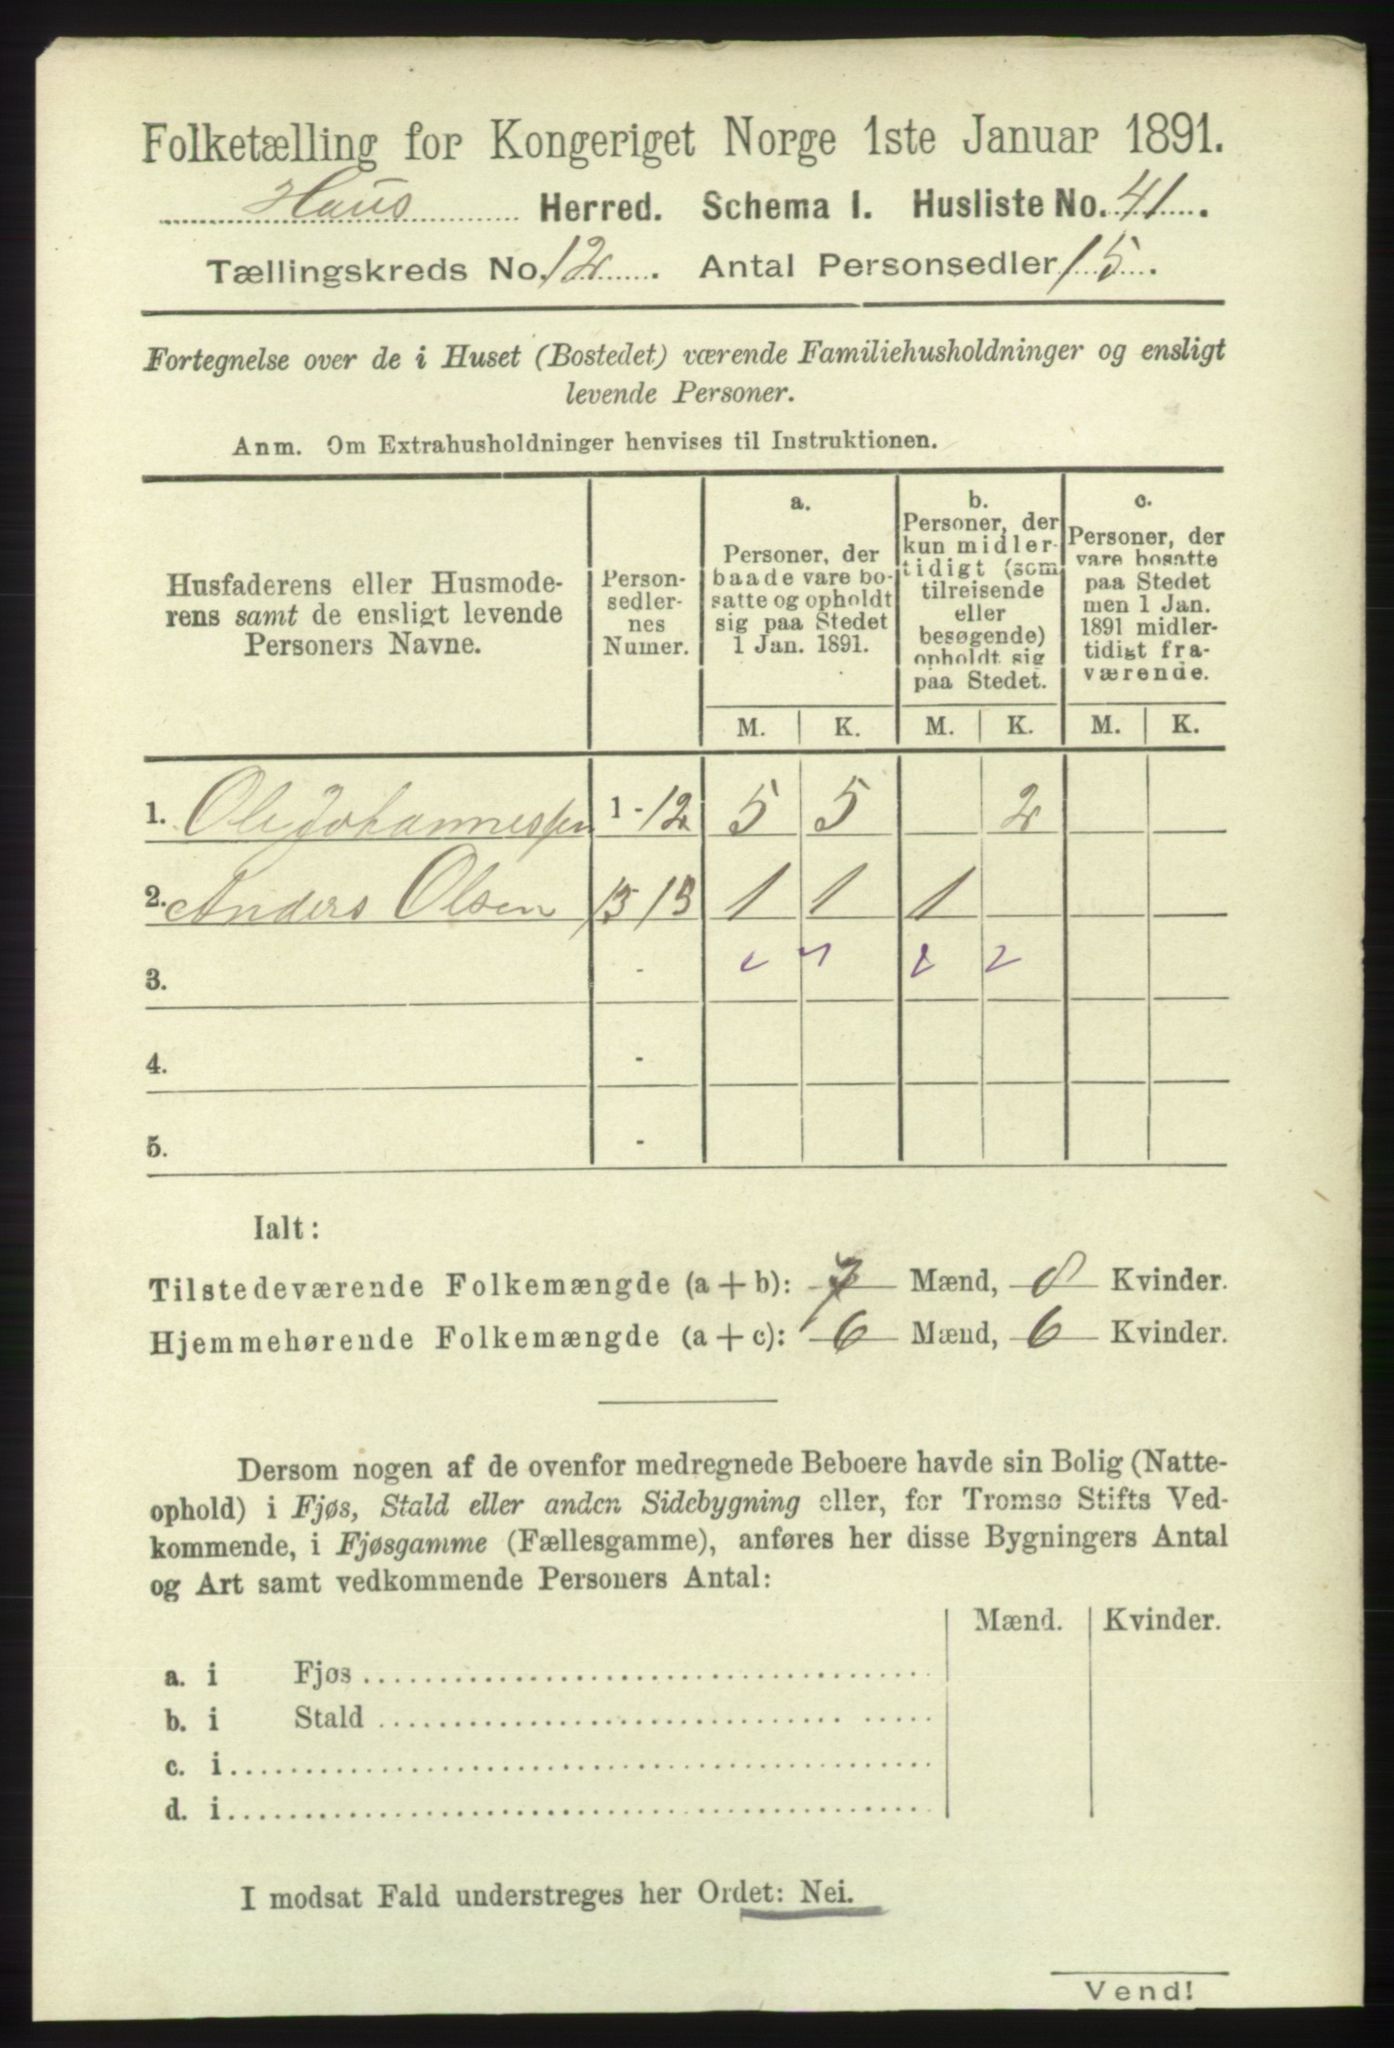 Folketælling for Kongeriget Norge 1ste Januar 1891.
Haus Herred. Schema I. Husliste No. 41.
Tællingskreds No. 12. Antal Personsedler 15.
Fortegnelse over de i Huset (Bostedet) værende Familiehusholdninger og ensligt
levende Personer.
Anm. Om Extrahusholdninger henvises til Instruktionen.
Husfaderens eller Husmode-
rens samt de ensligt levende
Personers Navne.
Person-
sedler-
nes
Numer.
a.
Personer, der
baade vare bo-
satte og opholdt
sig paa Stedet
1 Jan. 1891.
b.
Personer, der
kun midler-
tidigt (som
tilreisende
eller
besøgende)
opholdt sig
paa Stedet.
c.
Personer, der
vare bosatte
paa Stedet
men 1 Jan.
1891 midler-
tidigt fra-
værende.
M. K. M. K. M. K.
1. Ole Johannessen 1-12 5 5 2
2. Anders Olsen 13 15 1 1 1
3. -
4. -
5. -
Ialt:
Tilstedeværende Folkemængde (a+b): 7 Mænd, 8 Kvinder.
Hjemmehørende Folkemængde (a+c): 6 Mænd, 6 Kvinder.
Dersom nogen af de ovenfor medregnede Beboere havde sin Bolig (Natte-
ophold) i Fjøs, Stald eller anden Sidebygning eller, for Tromsø Stifts Ved-
kommende, i Fjøsgamme (Fællesgamme), anføres her disse Bygningers Antal
og Art samt vedkommende Personers Antal:
Mænd. Kvinder.
a. i Fjøs
b. i Stald
c. i
d. i
I modsat Fald understreges her Ordet: Nei.
Vend!